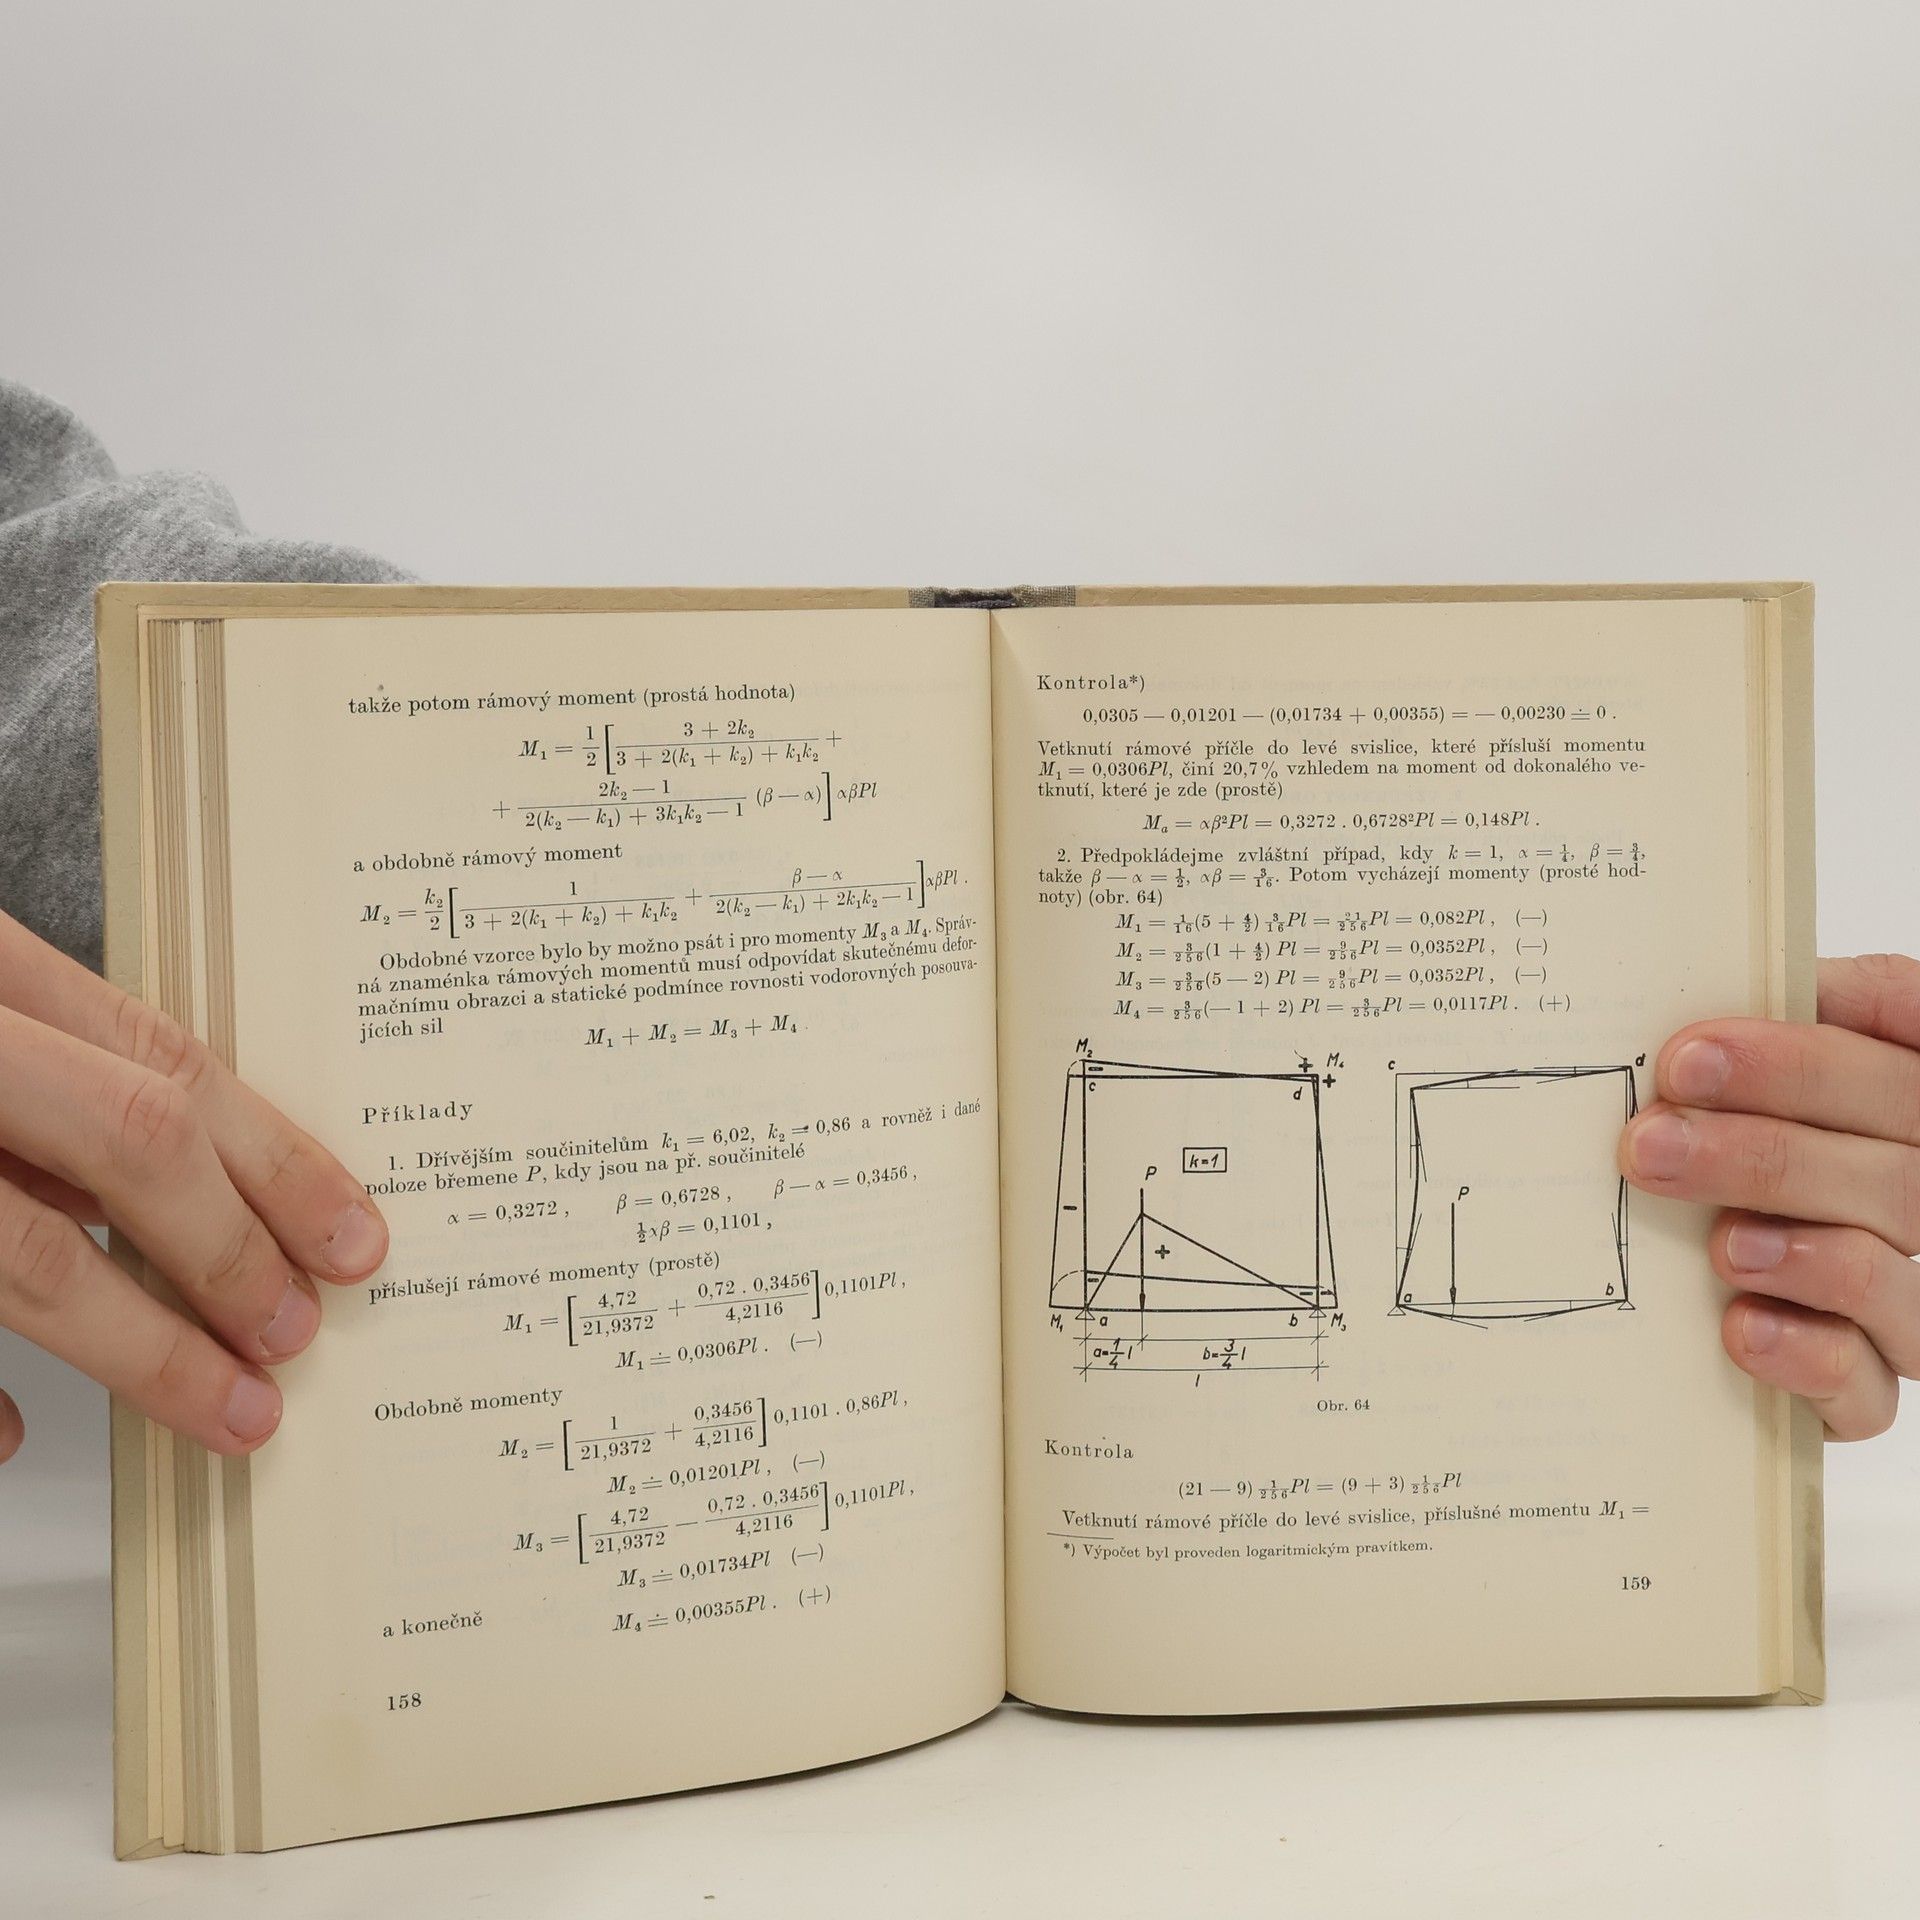 takže potom rámový moment (prostá hodnota)
M₁ = 1/2 [ (3 + 2k₂) / (3 + 2(k₁ + k₂) + k₁k₂) +
+ (2k₂ — 1) / (2(k₂ — k₁) + 3k₁k₂ — 1) (β — α) ] αβPl
a obdobně rámový moment
M₂ = k₂/2 [ 1 / (3 + 2(k₁ + k₂) + k₁k₂) + (β — α) / (2(k₂ — k₁) + 2k₁k₂ — 1) ] αβPl .
Obdobné vzorce bylo by možno psát i pro momenty M₃ a M₄. Správ-
ná znaménka rámových momentů musí odpovídat skutečnému defor-
mačnímu obrazci a statické podmínce rovnosti vodorovných posouva-
jících sil
M₁ + M₂ = M₃ + M₄ .
Příklady
1. Dřívějším součinitelům k₁ = 6,02, k₂ = 0,86 a rovněž i dané
poloze břemene P, kdy jsou na př. součinitelé
α = 0,3272 , β = 0,6728 , β — α = 0,3456 ,
½αβ = 0,1101 ,
příslušejí rámové momenty (prostě)
M₁ = [ 4,72 / 21,9372 + 0,72 . 0,3456 / 4,2116 ] 0,1101Pl ,
M₁ ≐ 0,0306Pl . (—)
Obdobně momenty
M₂ = [ 1 / 21,9372 + 0,3456 / 4,2116 ] 0,1101 . 0,86Pl ,
M₂ ≐ 0,01201Pl , (—)
M₃ = [ 4,72 / 21,9372 — 0,72 . 0,3456 / 4,2116 ] 0,1101Pl ,
M₃ ≐ 0,01734Pl (—)
a konečně M₄ ≐ 0,00355Pl . (+)
158
Kontrola*)
0,0305 — 0,01201 — (0,01734 + 0,00355) = — 0,00230 ≐ 0 .
Vetknutí rámové příčle do levé svislice, které přísluší momentu
M₁ = 0,0306Pl, činí 20,7% vzhledem na moment od dokonalého ve-
tknutí, které je zde (prostě)
Mₐ = αβ²Pl = 0,3272 . 0,6728²Pl = 0,148Pl .
2. Předpokládejme zvláštní případ, kdy k = 1, α = 1/4, β = 3/4,
takže β — α = 1/2, αβ = 3/16. Potom vycházejí momenty (prosté hod-
noty) (obr. 64)
M₁ = 1/16(5 + 4/2) 3/16Pl = 21/256Pl = 0,082Pl , (—)
M₂ = 3/256(1 + 4/2) Pl = 9/256Pl = 0,0352Pl , (—)
M₃ = 3/256(5 — 2) Pl = 9/256Pl = 0,0352Pl , (—)
M₄ = 3/256(— 1 + 2) Pl = 3/256Pl = 0,0117Pl . (+)
M₂ — c + M₄ + d
k=1
P
—
+
— —
M₁ a b M₃
a=1/4 l b=3/4 l
l
c d
P
a b
Obr. 64
Kontrola
(21 — 9) 1/256Pl = (9 + 3) 1/256Pl
Vetknutí rámové příčle do levé svislice, příslušné momentu M₁ =
*) Výpočet byl proveden logaritmickým pravítkem.
159